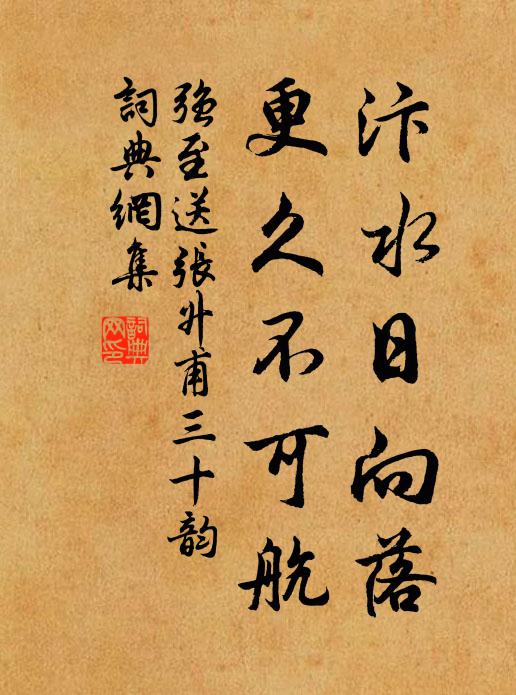 汴水日向落
更久不可航
強至送張升甫三十韵
詞典網集
詞典網印